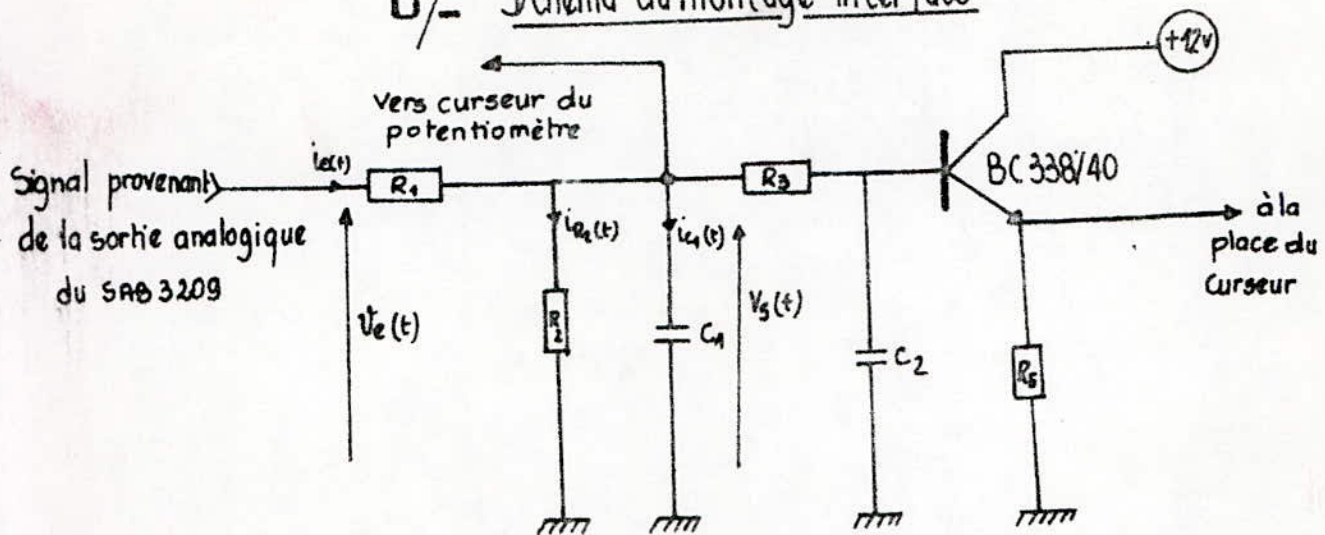 B/_ Schéma du montage interface
+12v
vers curseur du
potentiomètre
ie(t)
R1
R3
BC 338/40
Signal provenant
de la sortie analogique
du SAB 3209
iR2(t)
ic1(t)
à la
place du
curseur
Ve(t)
R2
C1
Vs(t)
C2
R5